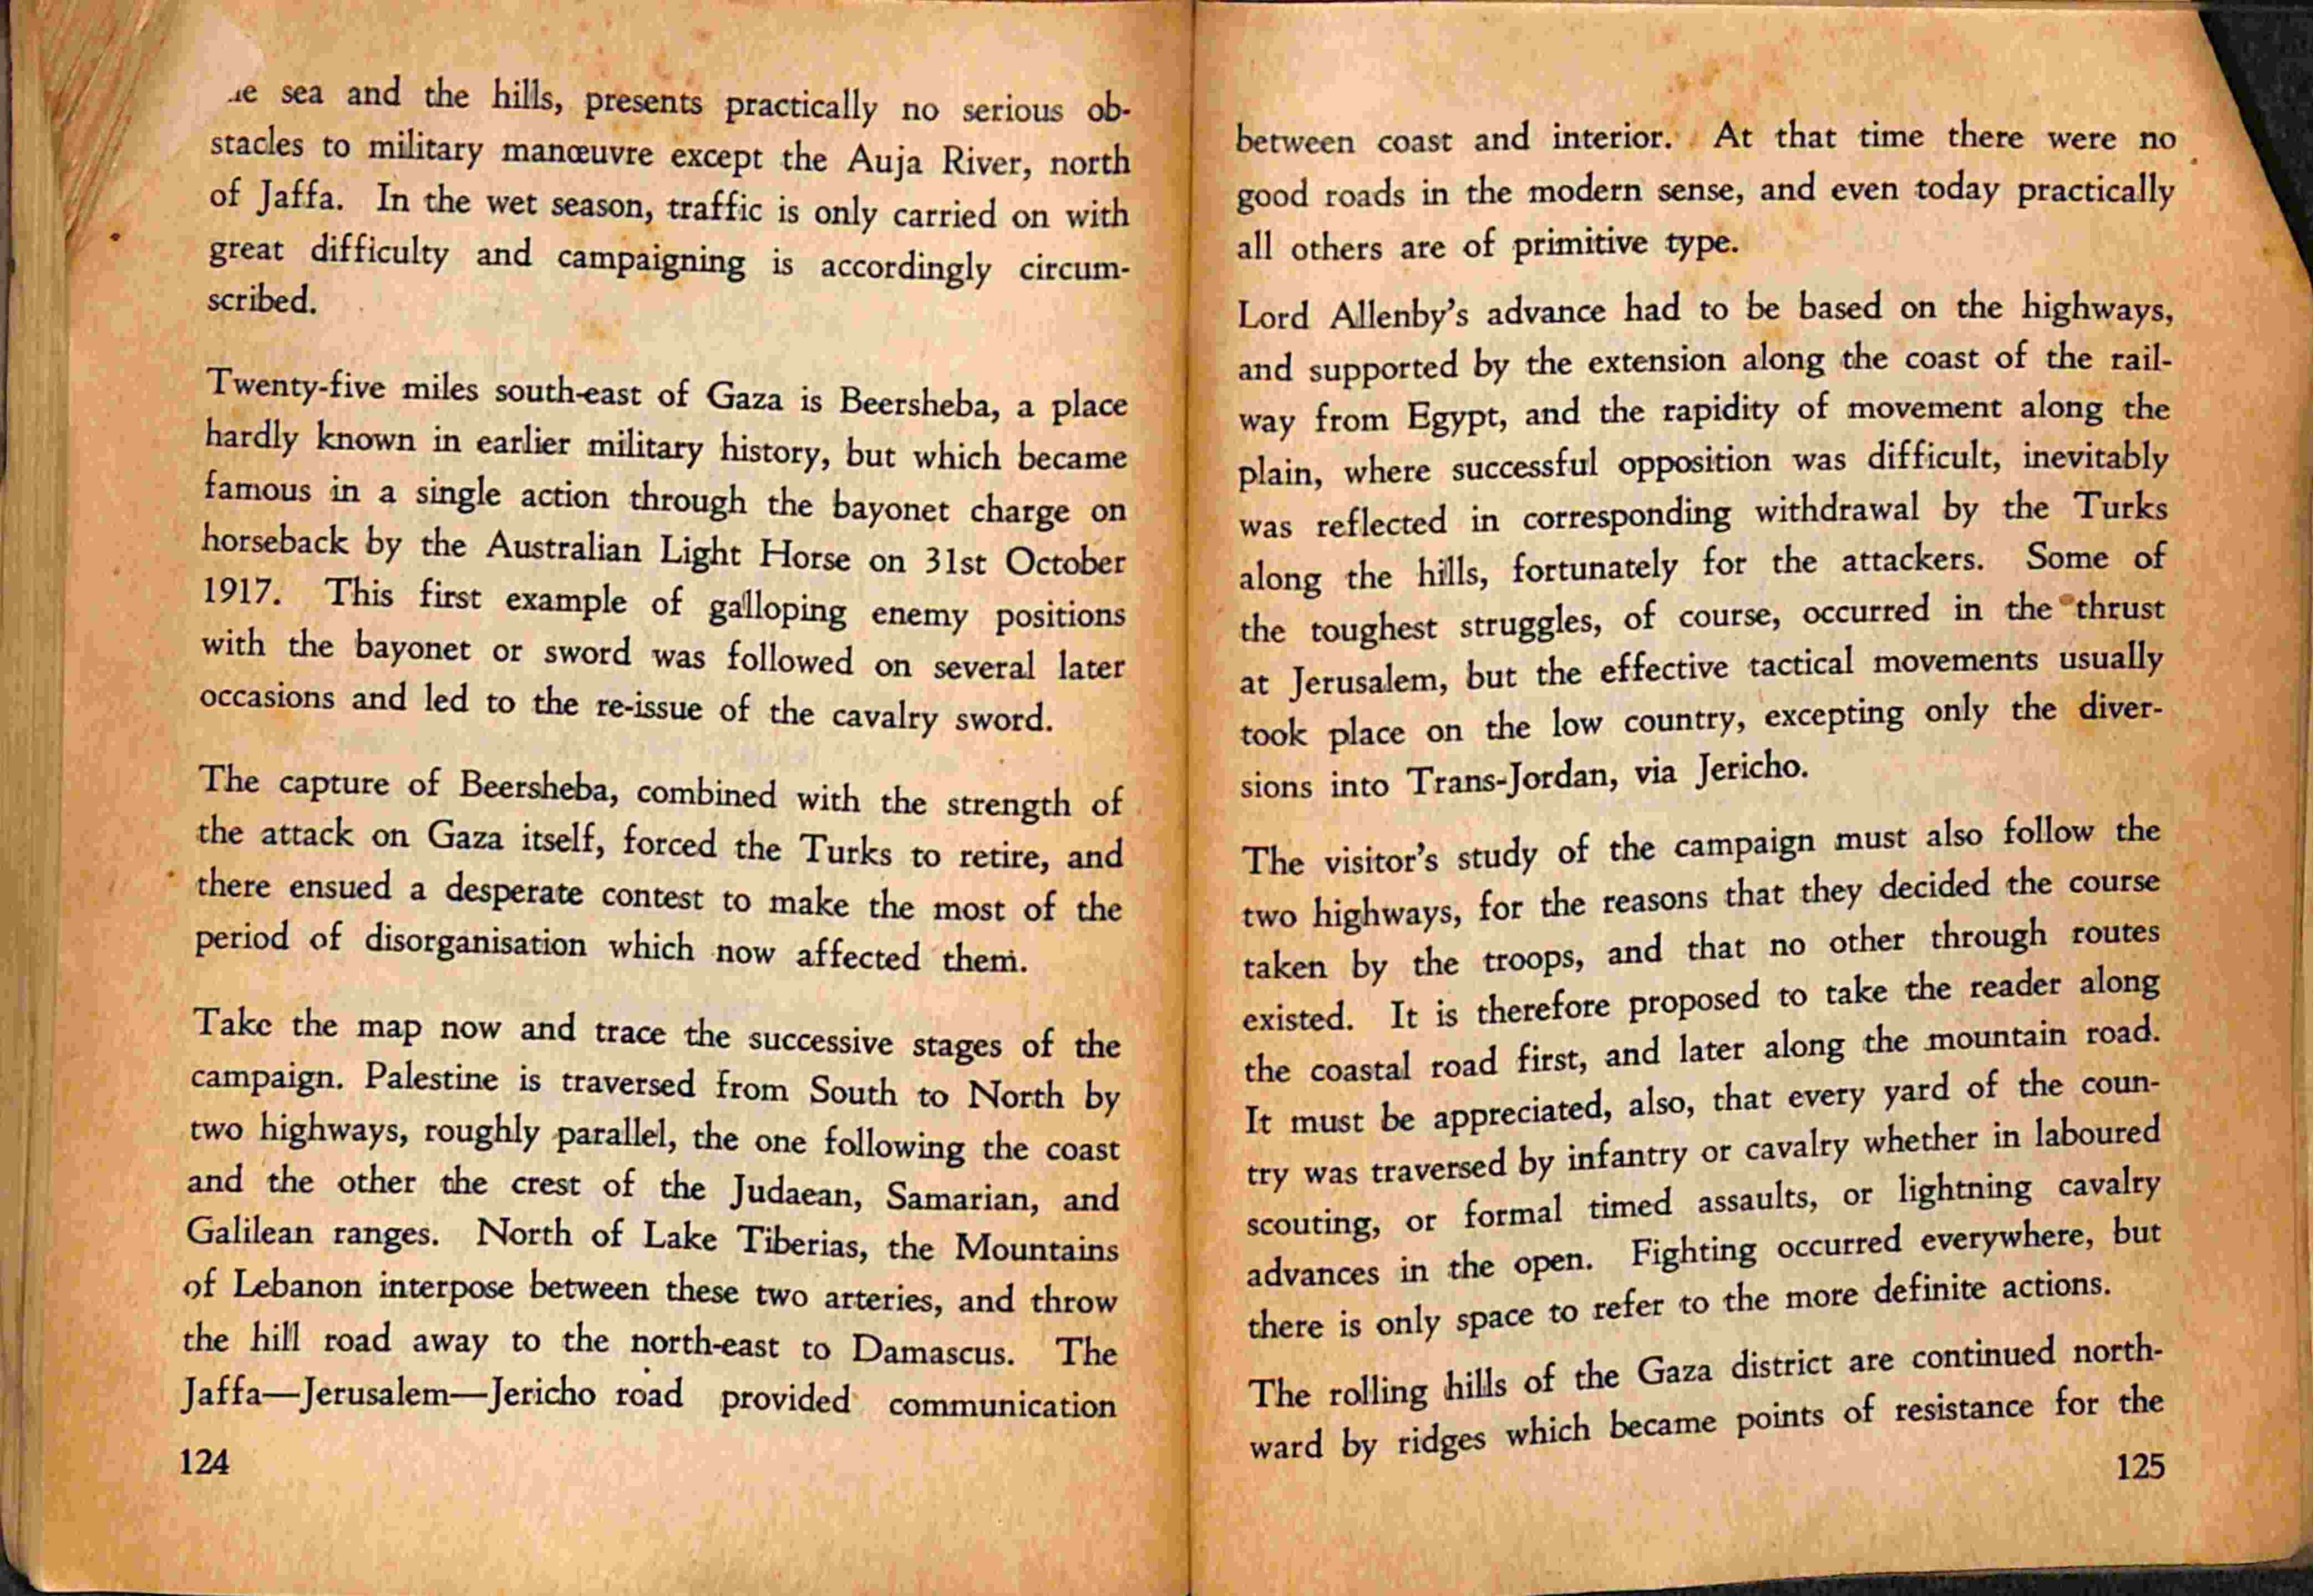 sea and the hills, presents practically no serious ob-
stacles to military manœuvre except the Auja River, north
of Jaffa. In the wet season, traffic is only carried on with
great difficulty and campaigning is accordingly circum-
scribed.
Twenty-five miles south-east of Gaza is Beersheba, a place
hardly known in earlier military history, but which became
famous in a single action through the bayonet charge on
horseback by the Australian Light Horse on 31st October
1917. This first example of galloping enemy positions
with the bayonet or sword was followed on several later
occasions and led to the re-issue of the cavalry sword.
The capture of Beersheba, combined with the strength of
the attack on Gaza itself, forced the Turks to retire, and
there ensued a desperate contest to make the most of the
period of disorganisation which now affected them.
Take the map now and trace the successive stages of the
campaign. Palestine is traversed from South to North by
two highways, roughly parallel, the one following the coast
and the other the crest of the Judaean, Samarian, and
Galilean ranges. North of Lake Tiberias, the Mountains
of Lebanon interpose between these two arteries, and throw
the hill road away to the north-east to Damascus. The
Jaffa—Jerusalem—Jericho road provided communication
124
between coast and interior. At that time there were no
good roads in the modern sense, and even today practically
all others are of primitive type.
Lord Allenby's advance had to be based on the highways,
and supported by the extension along the coast of the rail-
way from Egypt, and the rapidity of movement along the
plain, where successful opposition was difficult, inevitably
was reflected in corresponding withdrawal by the Turks
along the hills, fortunately for the attackers. Some of
the toughest struggles, of course, occurred in the thrust
at Jerusalem, but the effective tactical movements usually
took place on the low country, excepting only the diver-
sions into Trans-Jordan, via Jericho.
The visitor's study of the campaign must also follow the
two highways, for the reasons that they decided the course
taken by the troops, and that no other through routes
existed. It is therefore proposed to take the reader along
the coastal road first, and later along the mountain road.
It must be appreciated, also, that every yard of the coun-
try was traversed by infantry or cavalry whether in laboured
scouting, or formal timed assaults, or lightning cavalry
advances in the open. Fighting occurred everywhere, but
there is only space to refer to the more definite actions.
The rolling hills of the Gaza district are continued north-
ward by ridges which became points of resistance for the
125